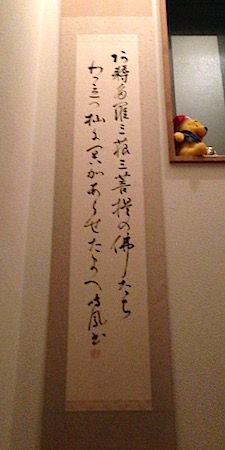 阿耨多羅三藐三菩提の佛たち
わが立つ杣に冥加あらせたまへ 風書